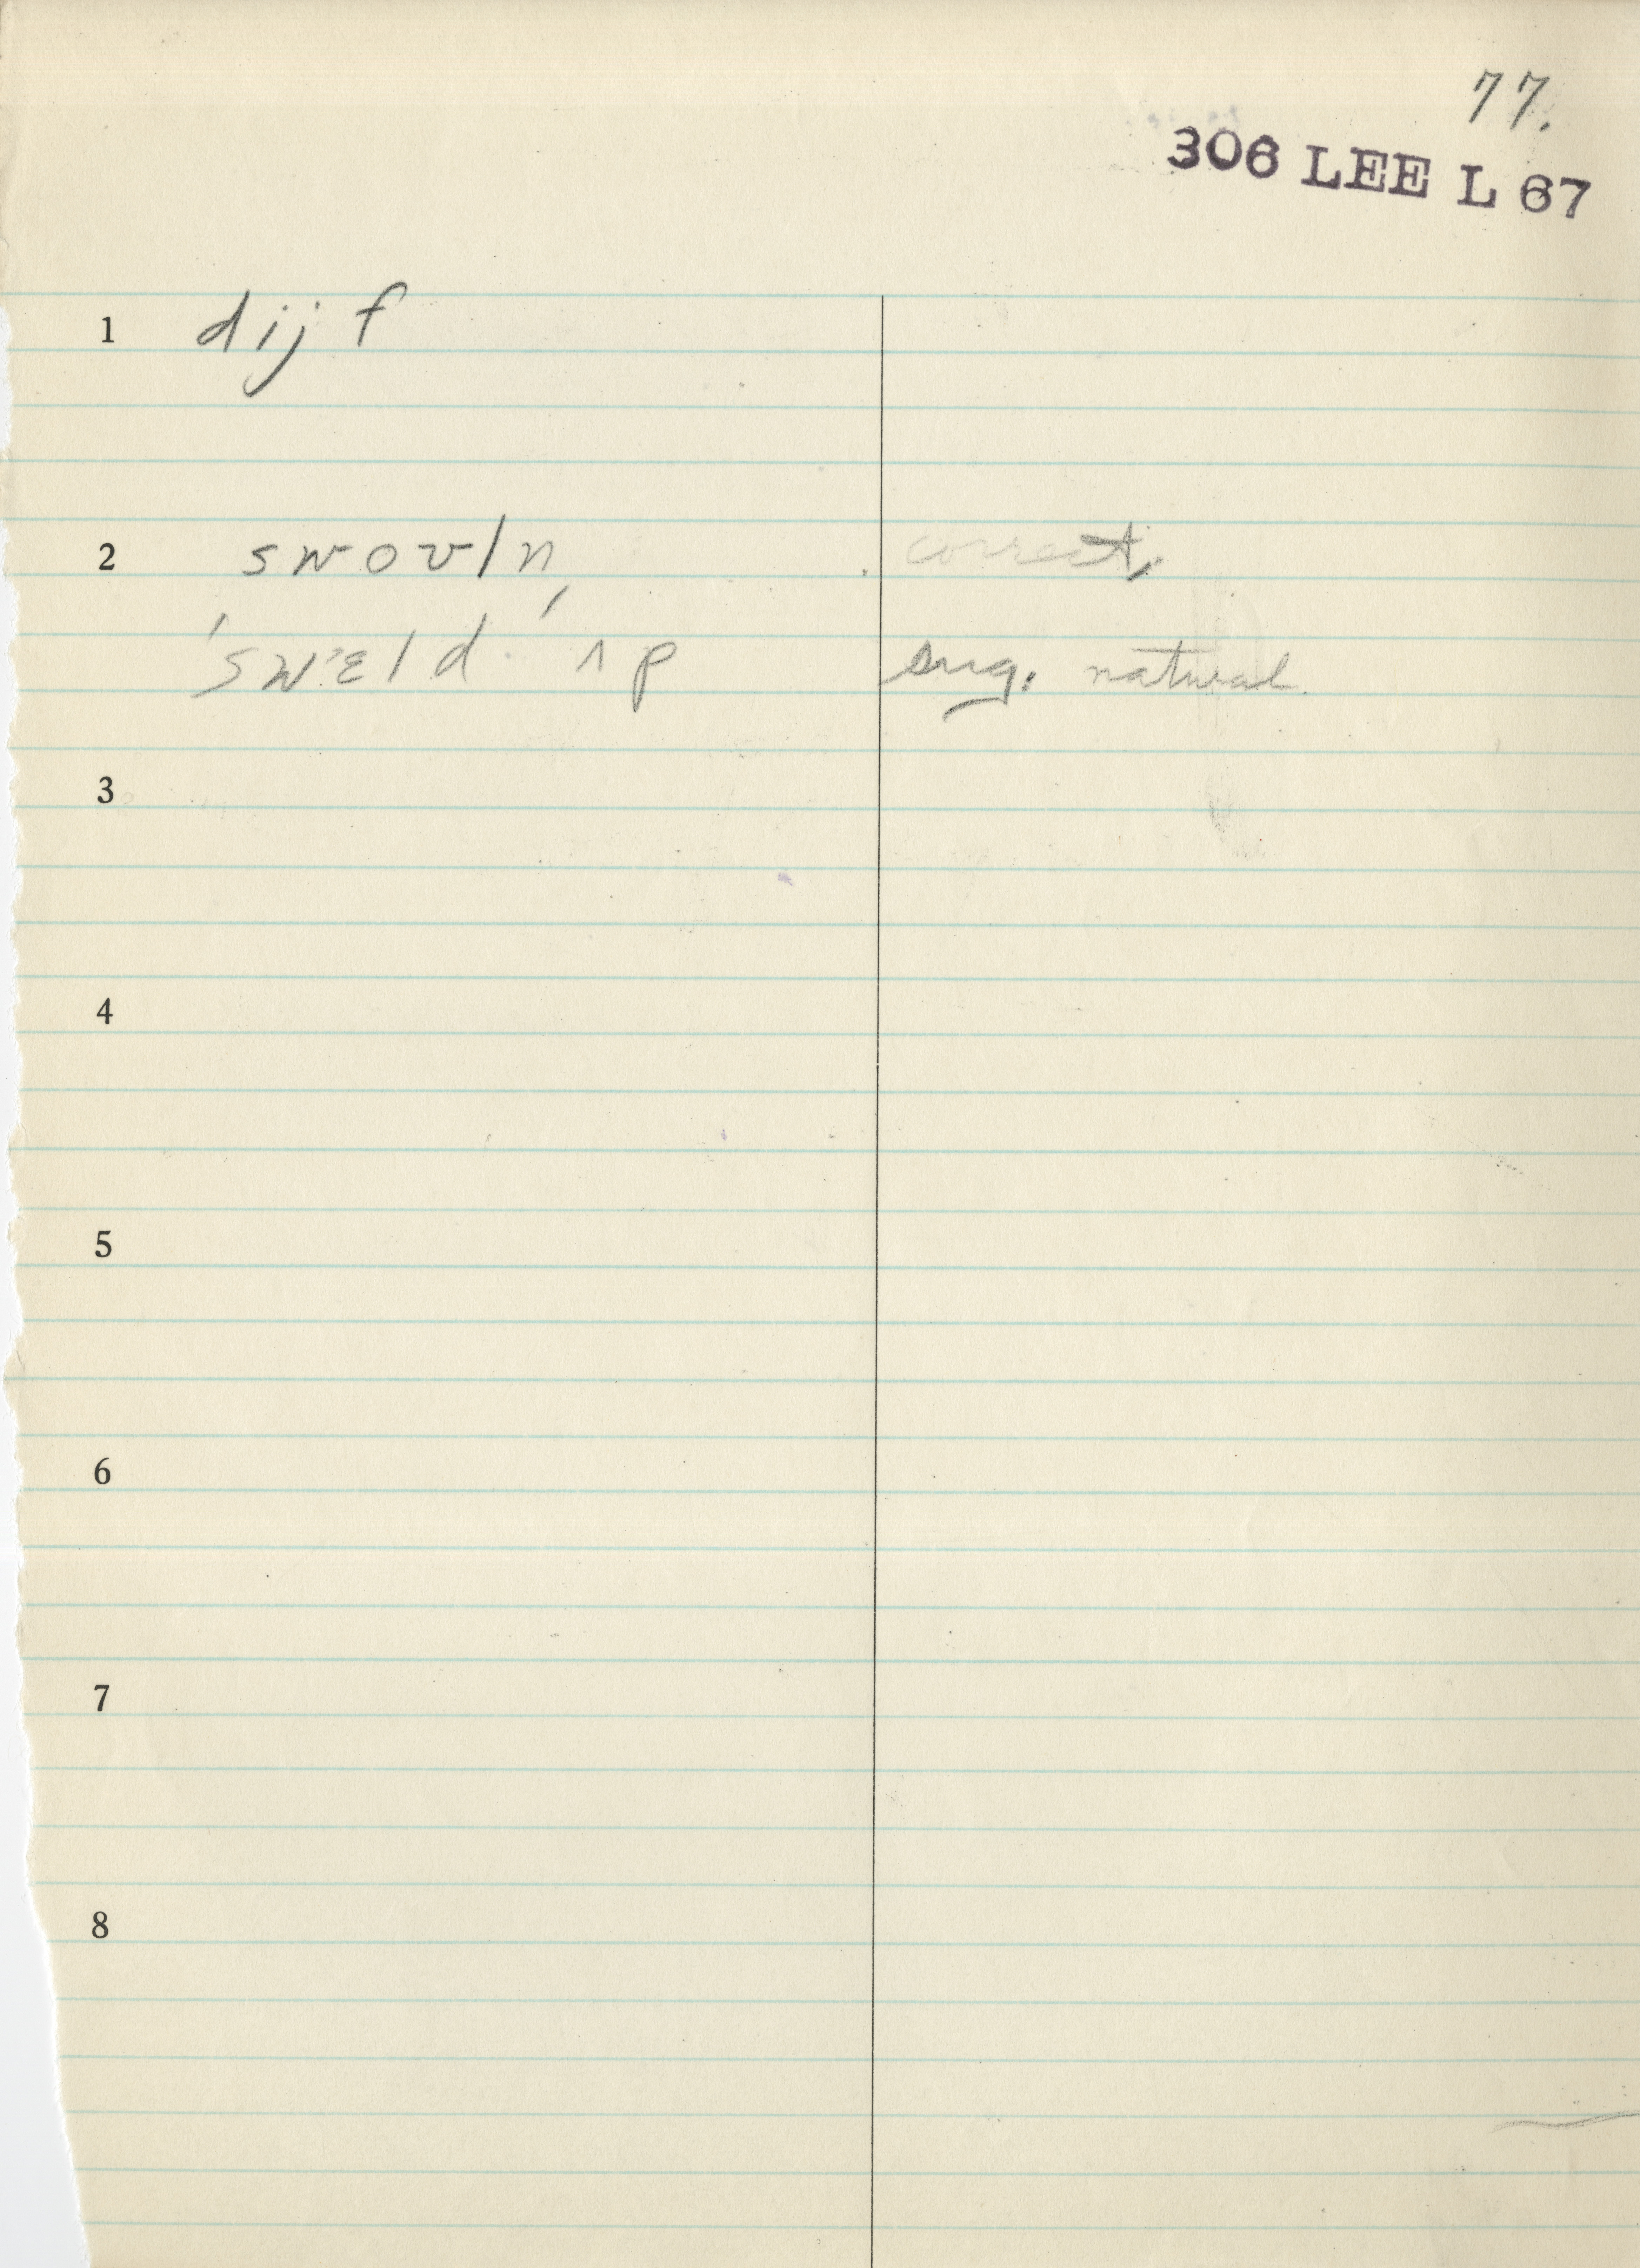 77.
306 LEE L 67
1 dijf
2 swoʊln̩ correct,
ˈswɛld ˈʌp sug. natural.
3
4
5
6
7
8